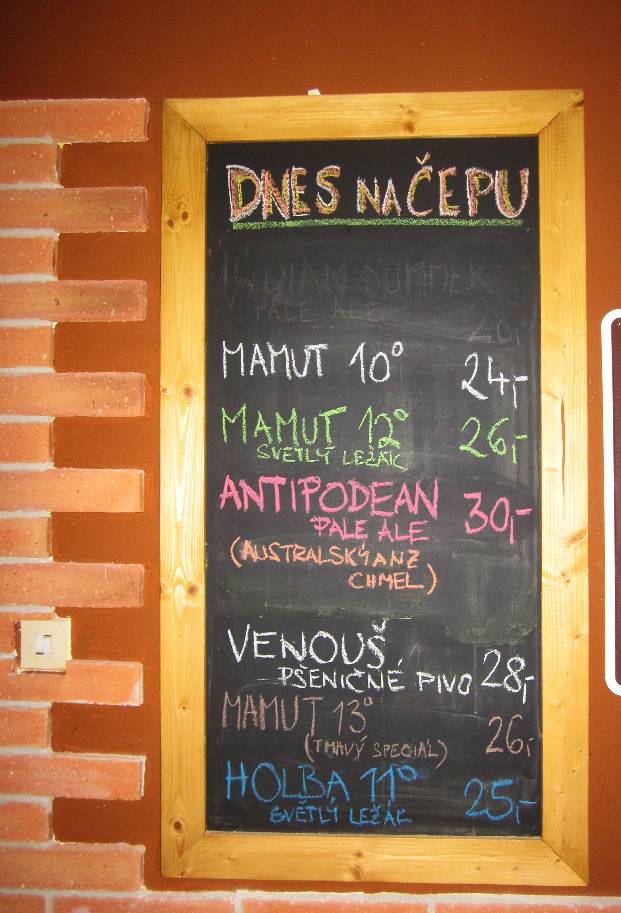 DNES NA ČEPU
INDIAN SUMMER
PALE ALE 28,-
MAMUT 10° 24,-
MAMUT 12° 26,-
SVĚTLÝ LEŽÁK
ANTIPODEAN 30,-
PALE ALE
(AUSTRALSKÝ A NZ
CHMEL)
VENOUŠ
PŠENIČNÉ PIVO 28,-
MAMUT 13° 26,-
(TMAVÝ SPECIÁL)
HOLBA 11° 25,-
SVĚTLÝ LEŽÁK